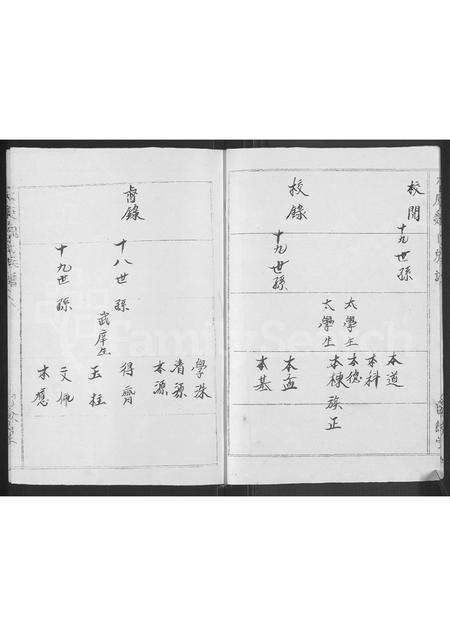 校閱
十九世孫
本道
本科
太學生 本德
太學生 本棟 族正
校錄
十九世孫
本孟
本基
學珠
清源
本源
謄錄
十八世孫
得齊
武庠生 玉柱
十九世孫
文佩
本應
FamilySearch